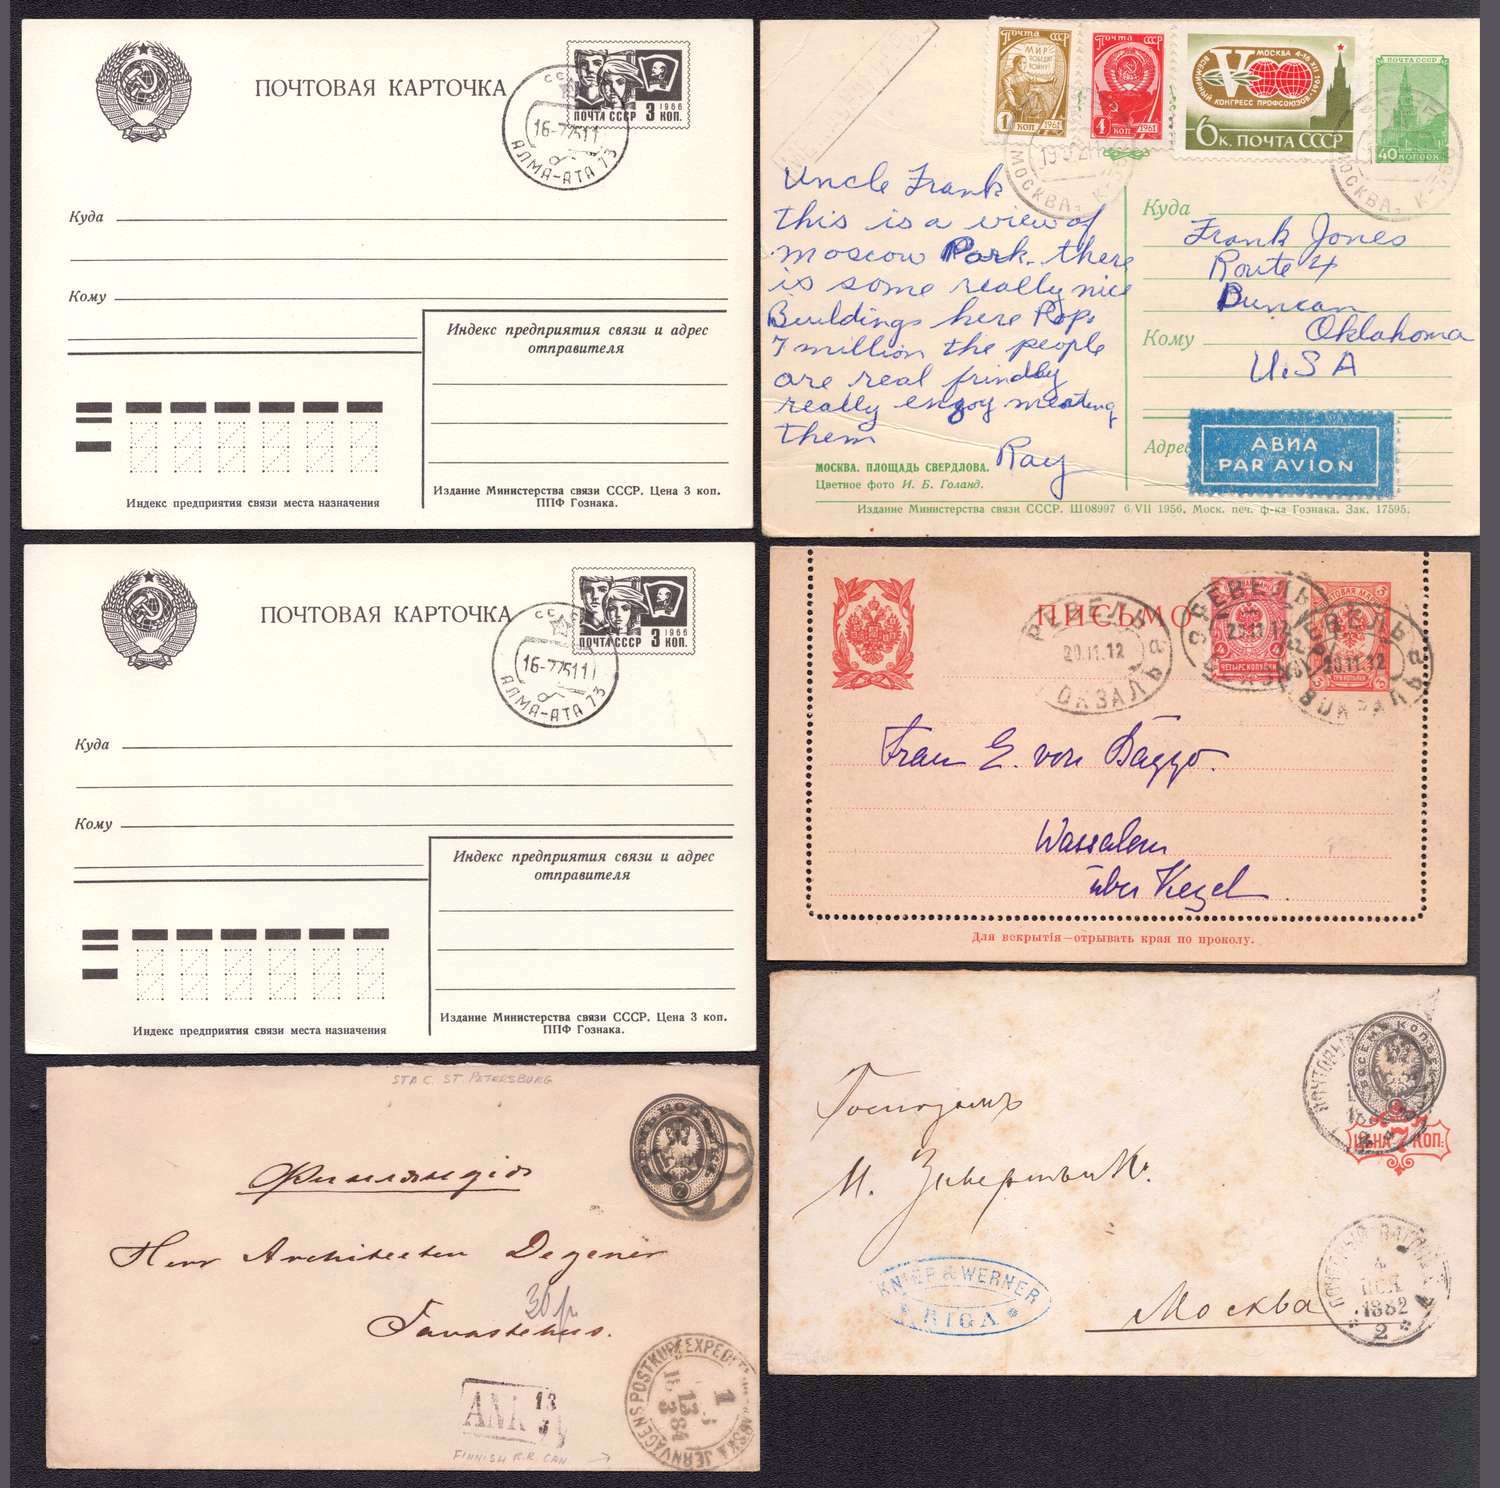 ПОЧТОВАЯ КАРТОЧКА
1966
ПОЧТА СССР 3 КОП.
16-7-75 11
АЛМА-АТА 73
Куда
Кому
Индекс предприятия связи и адрес
отправителя
Индекс предприятия связи места назначения
Издание Министерства связи СССР. Цена 3 коп.
ППФ Гознака.
Почта СССР
МИР
ПОБЕДИТ
ВОЙНУ!
1 КОП 1961
Почта СССР
4 КОП. 1961
МОСКВА 4-16 XII 1961
ВСЕМИРНЫЙ КОНГРЕСС ПРОФСОЮЗОВ
V
6 К. ПОЧТА СССР
ПОЧТА СССР
40 КОПЕЕК
МОСКВА
МОСКВА
Uncle Frank
this is a view of
moscow Park. there
is some really nice
Buildings here Pop.
7 million the people
are real frindly
really enjoy meating
them
Ray
МОСКВА. ПЛОЩАДЬ СВЕРДЛОВА.
Цветное фото И. Б. Голанд.
Куда
Frank Jones
Route 4
Duncan
Кому
Oklahoma
U.S A
Адрес
АВИА
PAR AVION
Издание Министерства связи СССР. Ш08997 6/VII 1956. Моск. печ. ф-ка Гознака. Зак. 17595.
ПОЧТОВАЯ КАРТОЧКА
1966
ПОЧТА СССР 3 КОП.
16-7-75 11
АЛМА-АТА 73
Куда
Кому
Индекс предприятия связи и адрес
отправителя
Индекс предприятия связи места назначения
Издание Министерства связи СССР. Цена 3 коп.
ППФ Гознака.
ПИСЬМО
РЕВЕЛЬ
20.11.12
ВОКЗАЛЪ
РЕВЕЛЬ
20.11.12
ВОКЗАЛЪ
4
ЧЕТЫРЕ КОПѢЙКИ
3
Frau E. von Baggo.
Wassalem
über Kegel.
Для вскрытія—отрывать края по проколу.
STA C. ST. PETERSBURG
Финляндія
Herr Architecten Degener
30 p
Tavastehus.
ANK 13
3
FINNISH R.R. CAN
FINSKA JERNVÄGENS POSTKUPÉEXPEDITION
1
13
3
84
ВОСЕМЬ КОПѢЕКЪ
ЦѢНА 7 КОП.
Господамъ
И. Зиверть и Ко
KNIEP & WERNER
RIGA
Москва
ПОЧТОВЫЙ ВАГОНЪ
4
НОЯ
1882
2